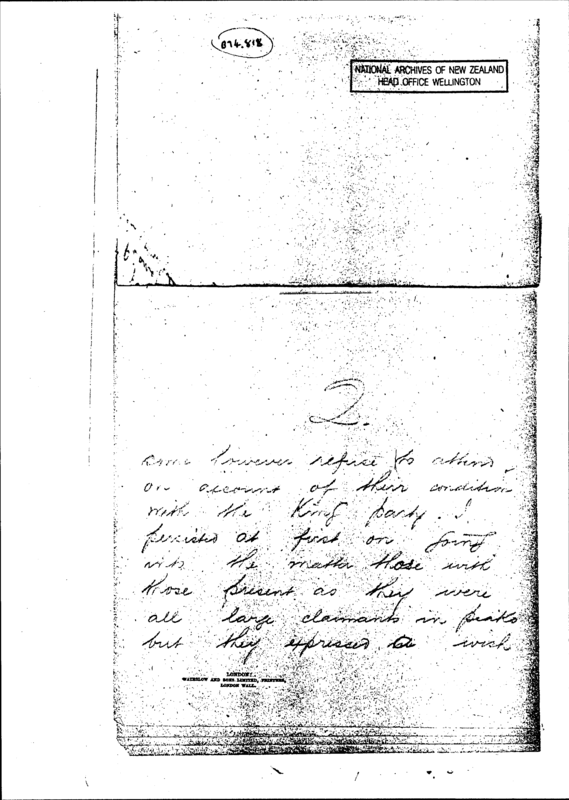 074.818
NATIONAL ARCHIVES OF NEW ZEALAND
HEAD OFFICE WELLINGTON
2.
some however refuse to attend
on account of their condition
with the King party. I
persisted at first on going
the matter those with
those present as they were
all large claimants in piako
but they expressed a wish
LONDON:
WATERLOW AND SONS LIMITED, PRINTERS,
LONDON WALL.